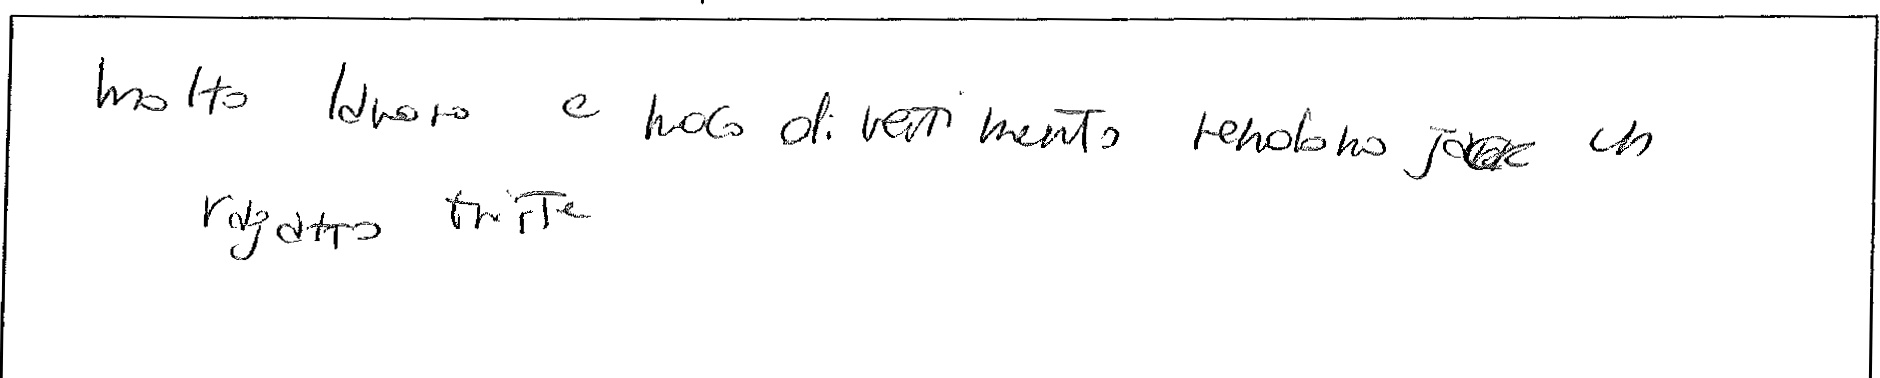 molto lavoro e poco divertimento rendono jack un
ragatto triste